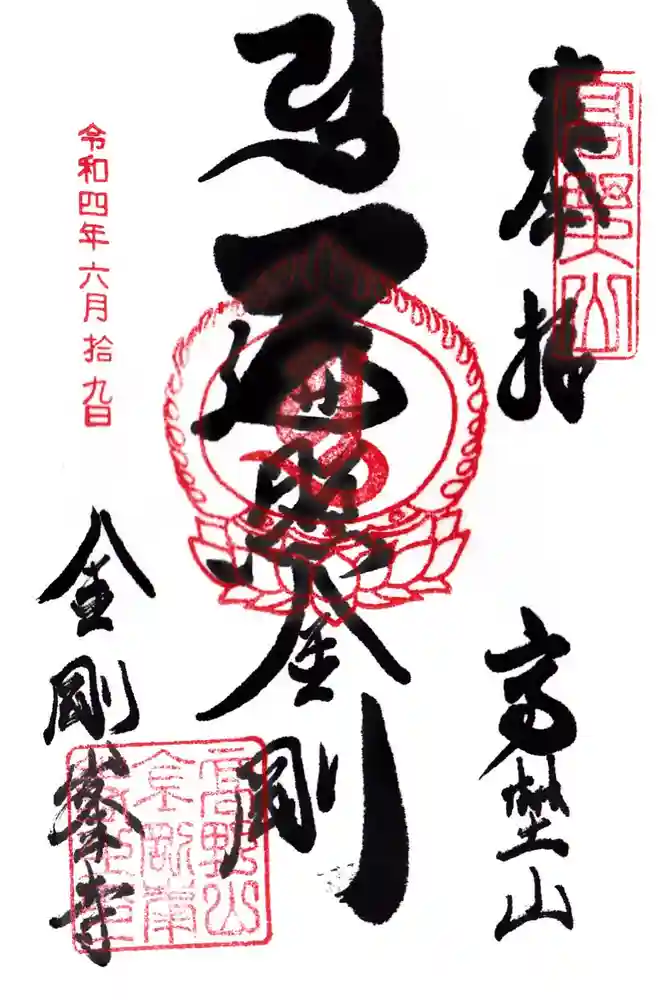 奉拝
高埜山
高野山
遍照金剛
令和四年六月拾九日
金剛峯寺
高野山
金剛峯